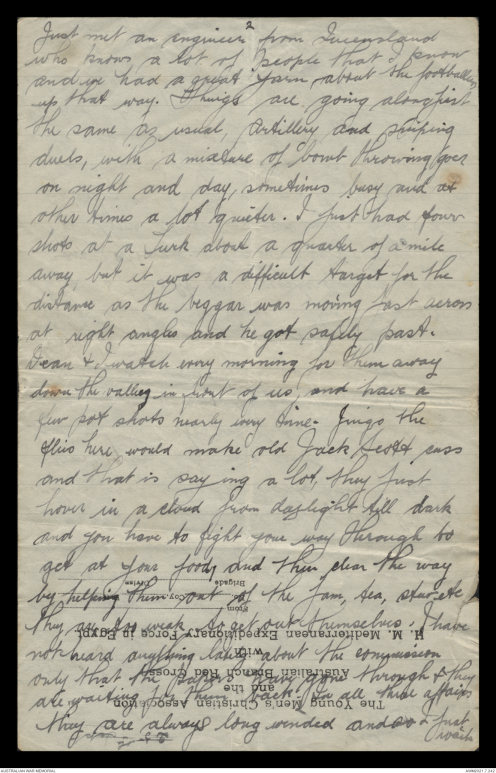 2
Just met an engineer from Queensland
who knows a lot of people that I know
and we had a great yarn about the footballers
up that way. Things are going along just
the same as usual, artillery and sniping
duels, with a mixture of bomb throwing goes
on night and day, sometimes busy and at
other times a lot quieter. I just had four
shots at a Turk about a quarter of a mile
away, but it was a difficult target for the
distance as the beggar was moving fast across
at right angles and he got safely past.
Dean & I watch every morning for them away
down the valley in front of us, and have a
few pot shots nearly every time. Jingo the
flies here would make old Jack Scott cuss
and that is saying a lot, they just
hover in a cloud from daylight till dark
and you have to fight your way through to
get at your food, and then clear the way
by helping them out of the jam, tea, stew etc
they are too weak to get out themselves. I have
not heard anything lately about the commission
only that the papers have gone through & they
are waiting for them back. In all these affairs
they are always long winded and so I just
wait
The Young Men's Christian Association
and the
Australian Branch Red Cross
with
H. M. Mediterranean Expeditionary Force in Egypt
From
Coy
Brigade
Division
AUSTRALIAN WAR MEMORIAL